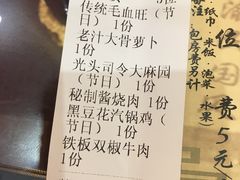 传统毛血旺（节
日） 1份
老汁大骨萝卜
1份
光头司令大麻园
（节日） 1份
秘制酱烧肉 1份
黑豆花汽锅鸡（
节日） 1份
铁板双椒牛肉
1份
纸巾
米饭·泡菜
水果）
包房费另计
位
国
贵5元